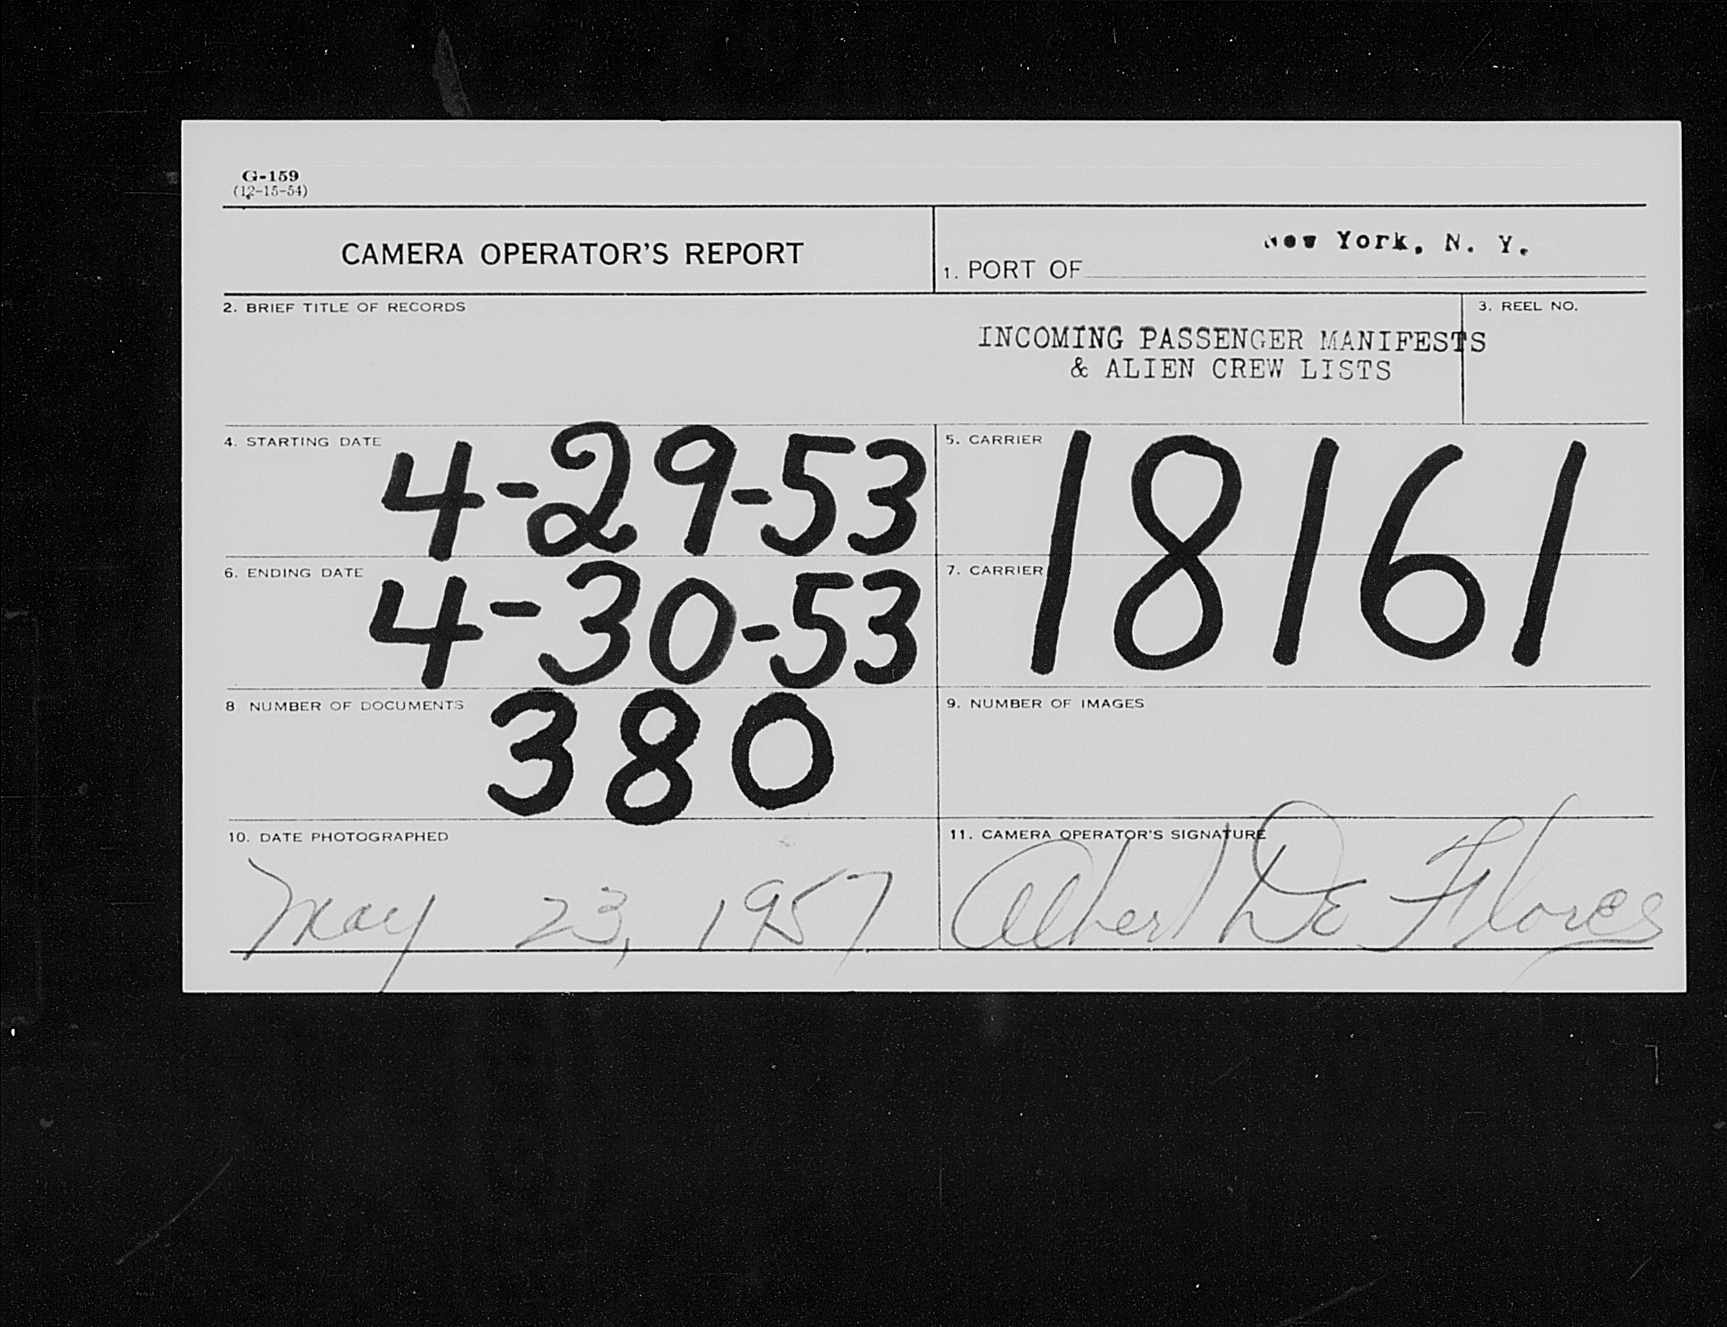 G-159
(12-15-54)
CAMERA OPERATOR'S REPORT
1. PORT OF New York, N. Y.
2. BRIEF TITLE OF RECORDS
INCOMING PASSENGER MANIFESTS
& ALIEN CREW LISTS
3. REEL NO.
4. STARTING DATE 4-29-53
5. CARRIER
18161
6. ENDING DATE 4-30-53
7. CARRIER
8 NUMBER OF DOCUMENTS 380
9. NUMBER OF IMAGES
10. DATE PHOTOGRAPHED
May 23, 1957
11. CAMERA OPERATOR'S SIGNATURE
Albert De Flores